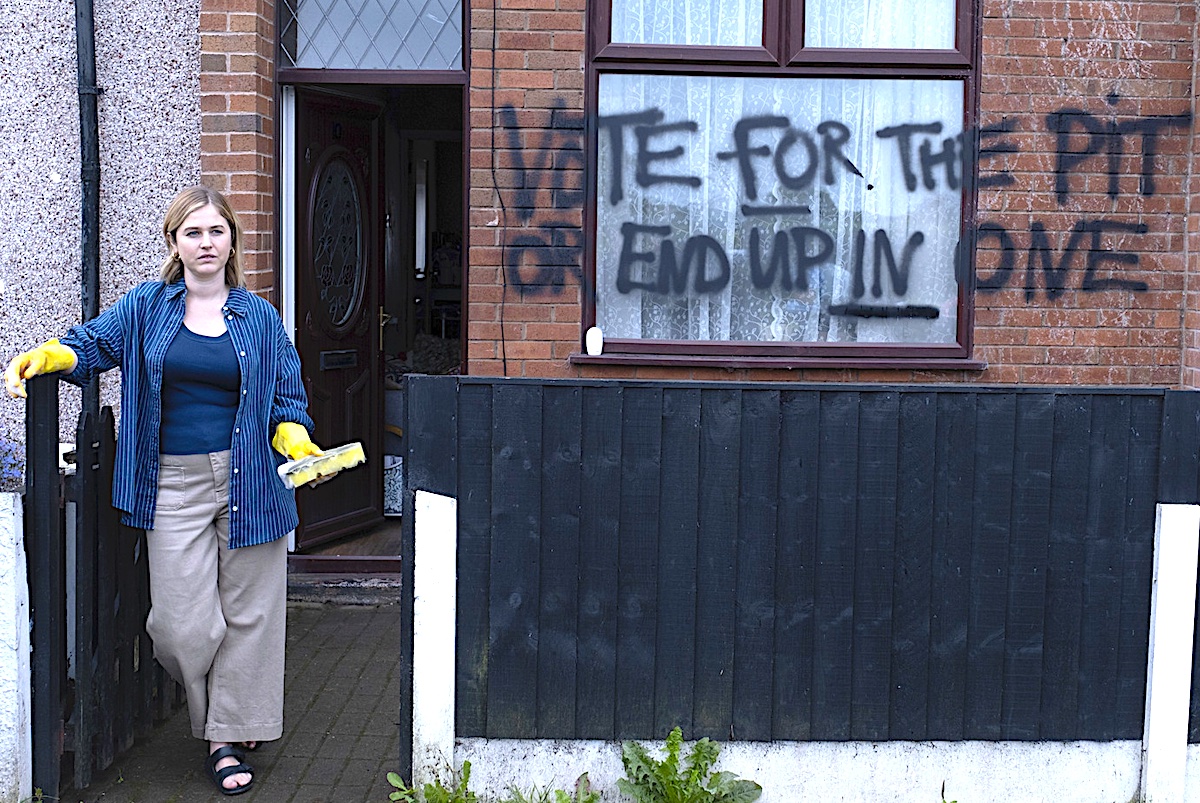 VOTE FOR THE PIT
OR END UP IN ONE